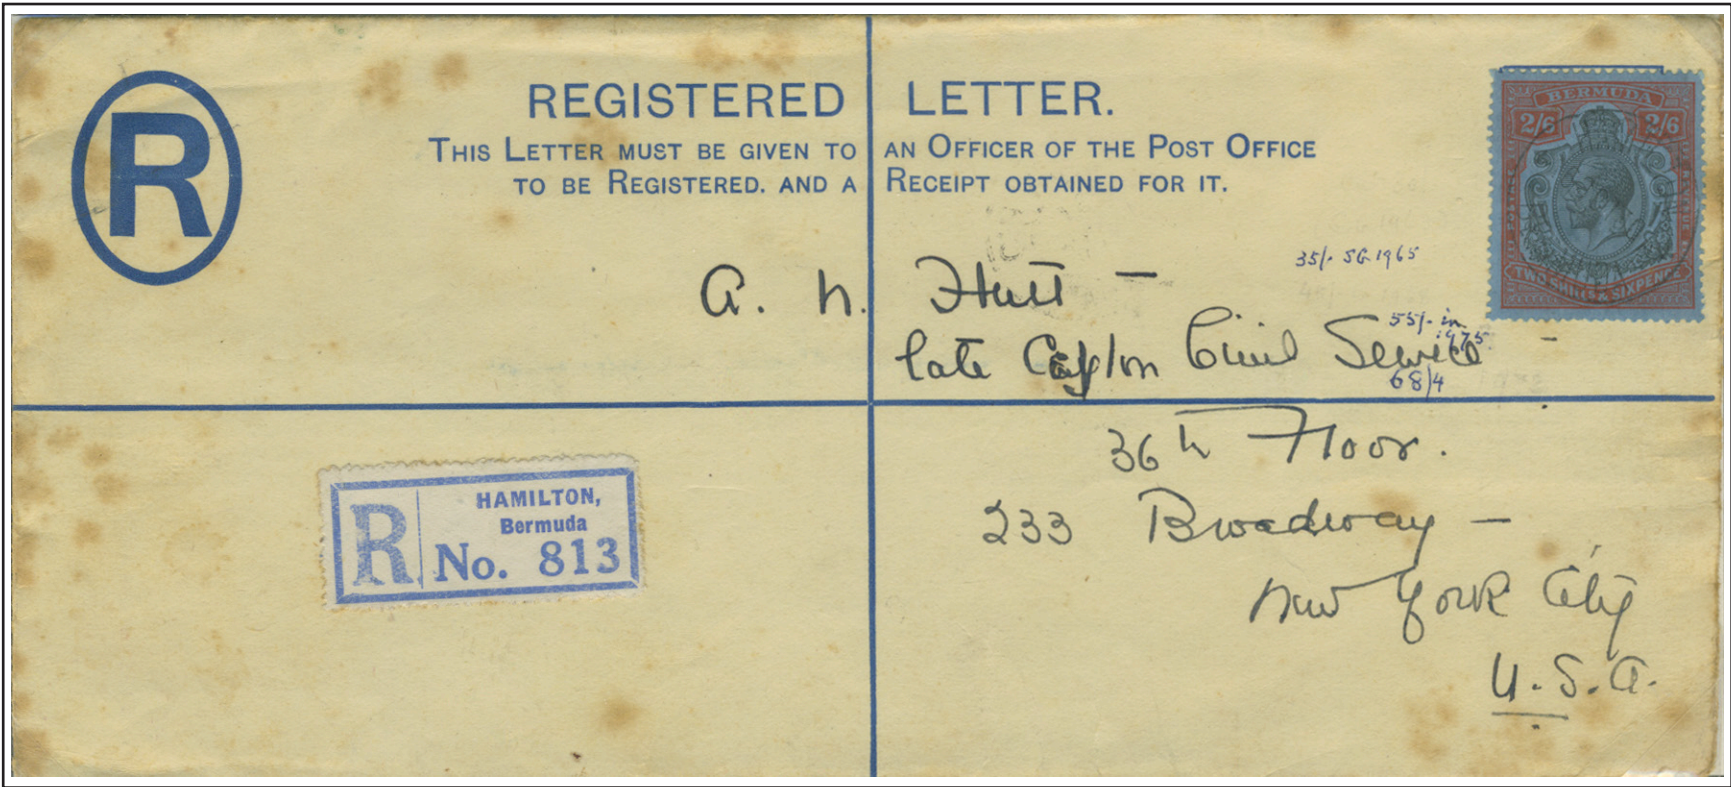 R
REGISTERED LETTER.
THIS LETTER MUST BE GIVEN TO AN OFFICER OF THE POST OFFICE
TO BE REGISTERED. AND A RECEIPT OBTAINED FOR IT.
BERMUDA
2/6 2/6
TWO SHILLS & SIXPENCE
35/- SG 1965
A. N. Hutt —
55/- in
1975
late Ceylon Civil Service —
68/4
36th Floor.
233 Broadway —
New York City
U.S.A.
R
HAMILTON,
Bermuda
No. 813